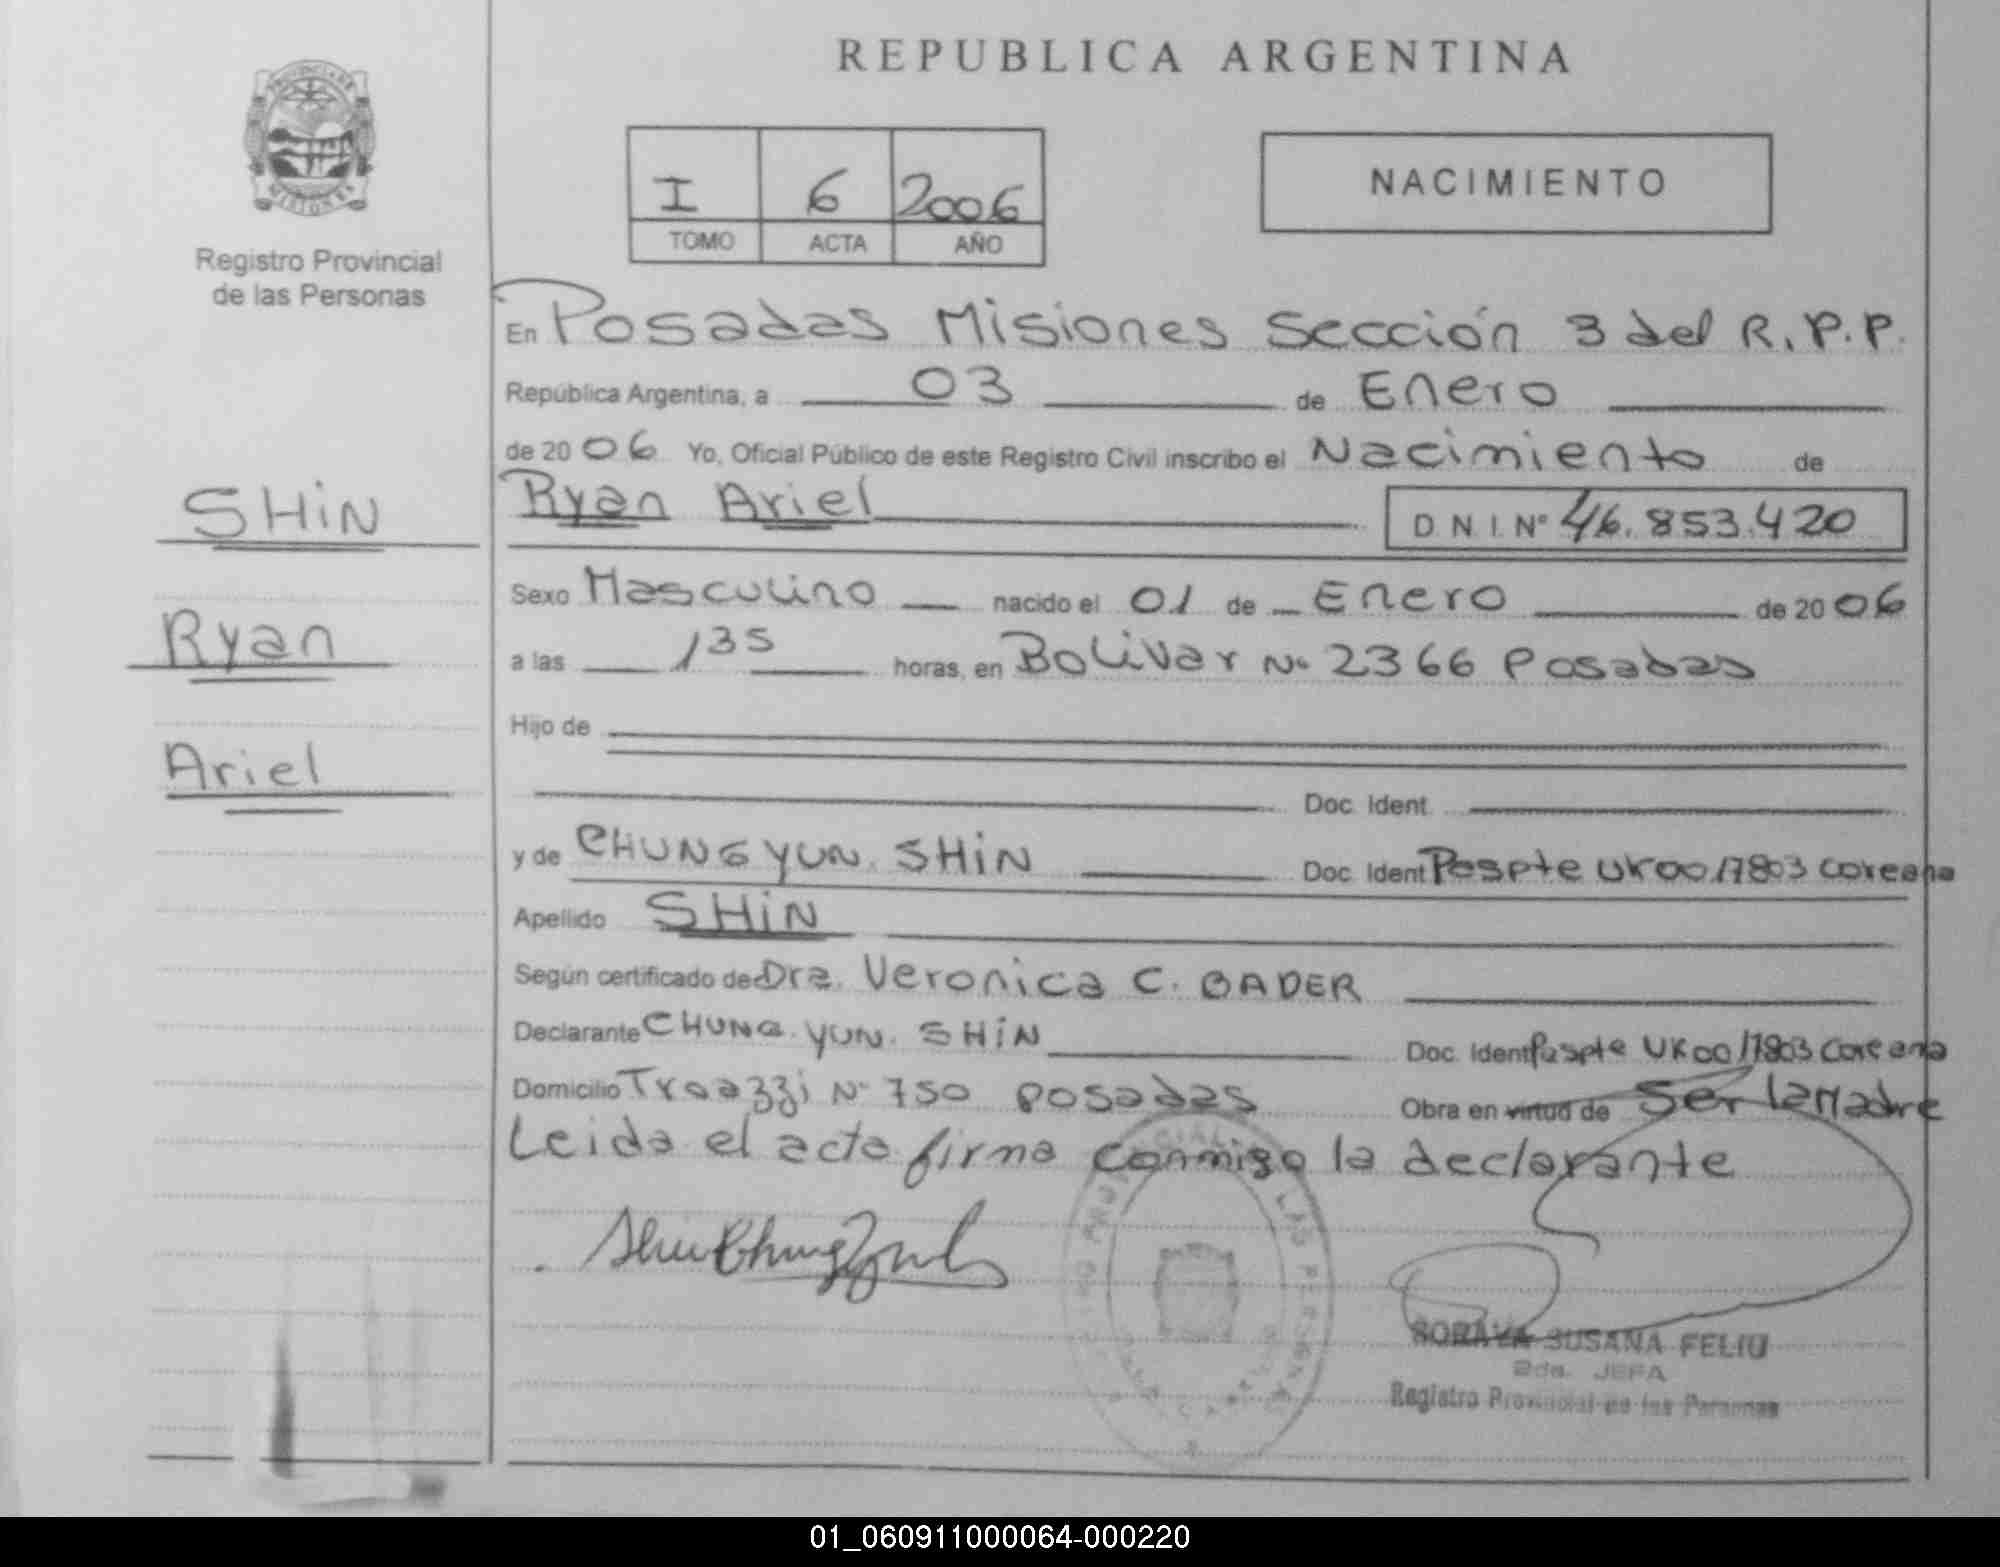 REPUBLICA ARGENTINA
PROVINCIA DE
MISIONES
Registro Provincial
de las Personas
I 6 2006
TOMO ACTA AÑO
NACIMIENTO
En Posadas Misiones Sección 3 del R.P.P.
República Argentina, a 03 de Enero
de 2006 Yo, Oficial Público de este Registro Civil inscribo el Nacimiento de
Ryan Ariel D.N.I. Nº 46.853.420
SHIN
Ryan
Ariel
Sexo Masculino nacido el 01 de Enero de 2006
a las 1 35 horas, en Bolivar Nº 2366 Posadas
Hijo de
Doc. Ident.
y de CHUNG YUN. SHIN Doc. Ident Paspte UK0017803 Coreana
Apellido SHIN
Según certificado de Dra. Veronica C. BADER
Declarante CHUNG. YUN. SHIN Doc. Ident Paspte UK0017803 Coreana
Domicilio Nº 750 Posadas Obra en virtud de Ser la Madre
Leida el acta firma conmigo la declarante
Shin Chung Yun
SORAYA SUSANA FELIU
2da. JEFA
Registro Provincial de las Personas
01_060911000064-000220